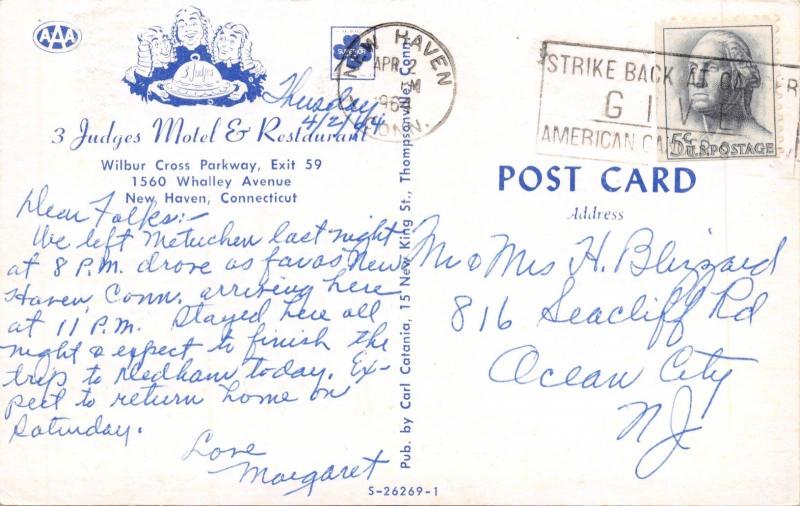 AAA
3 Judges
SUPERIOR
3 Judges Motel & Restaurant
Wilbur Cross Parkway, Exit 59
1560 Whalley Avenue
New Haven, Connecticut
Thursday
4/2/64
Dear Folks:-
We left Metuchen last night
at 8 P.M. drove as far as New
Haven, Conn. arriving here
at 11 P.M. Stayed here all
night & expect to finish the
trip to Dedham today. Ex-
pect to return home on
Saturday.
Love
Margaret
Pub. by Carl Catania, 15 New King St., Thompsonville, Conn.
S-26269-1
NEW HAVEN
APR 2
M
196
CONN.
STRIKE BACK AT
GIVE
AMERICAN
5c U.S. POSTAGE
POST CARD
Address
Mr & Mrs H. Blizzard
816 Seacliff Rd
Ocean City
NJ